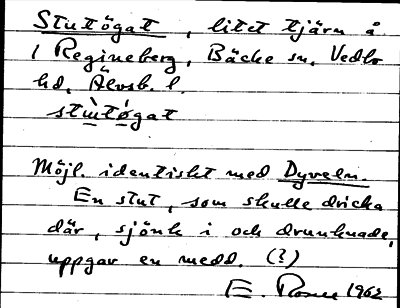 Stutögat, litet tjärn å
1 Regineberg, Bäcke sn, Vedbo
hd, Älvsb. l.
stùtö́gat
Möjl. identiskt med Dyveln.
En stut, som skulle dricka
där, sjönk i och drunknade,
uppgav en medd. (?)
E 1962